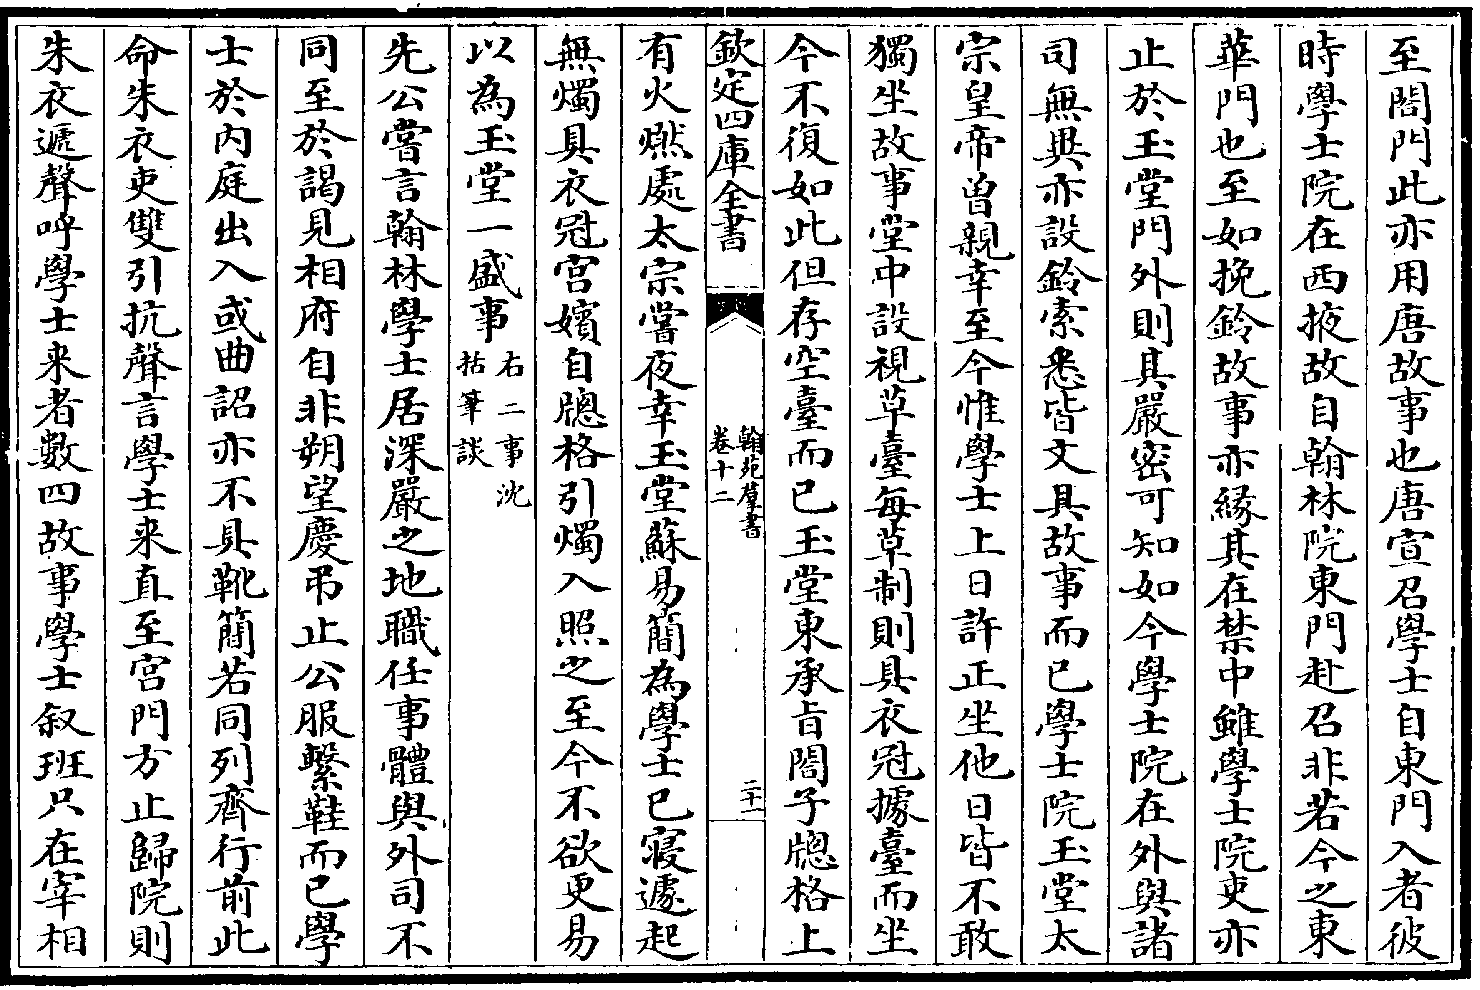 至閤門此亦用唐故事也唐宣召學士自東門入者彼
時學士院在西掖故自翰林院東門赴召非若今之東
華門也至如挽鈴故事亦緣其在禁中雖學士院吏亦
止於玉堂門外則其嚴密可知如今學士院在外與諸
司無異亦設鈴索悉皆文具故事而已學士院玉堂太
宗皇帝曽親幸至今惟學士上日許正坐他日皆不敢
獨坐故事堂中設視草臺每草制則具衣冠據臺而坐
今不復如此但存空臺而已玉堂東承㫖閤子牕格上
欽定四庫全書
翰苑羣書
卷十二
二十一
有火燃處太宗嘗夜幸玉堂蘇易簡為學士已寢遽起
無燭具衣冠宫嬪自牕格引燭入照之至今不欲更易
以為玉堂一盛事右二事沈
括筆談
先公嘗言翰林學士居深嚴之地職任事體與外司不
同至於謁見相府自非朔望慶弔止公服繫鞋而已學
士於内庭出入或曲詔亦不具靴簡若同列齊行前此
命朱衣吏雙引抗聲言學士来直至宫門方止歸院則
朱衣遞聲呼學士来者數四故事學士叙班只在宰相